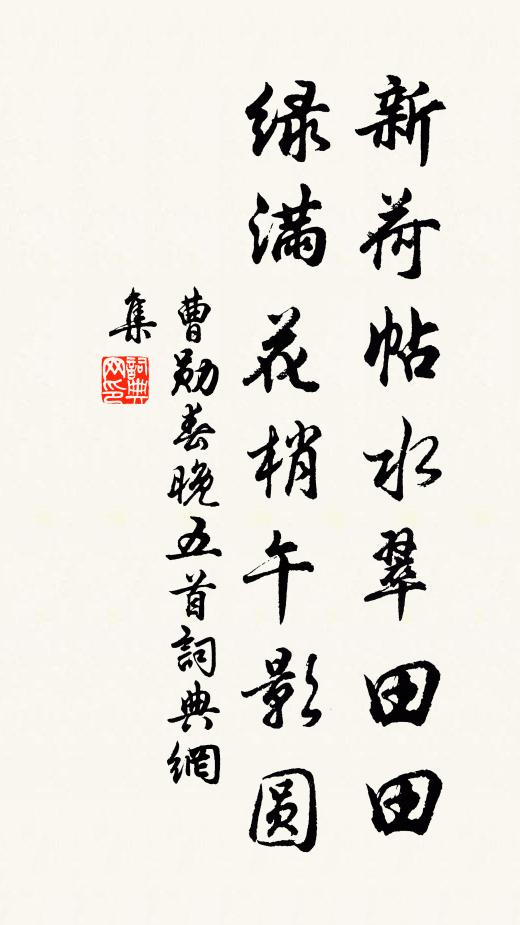 新荷帖水翠田田
绿满花梢午影圆
曹勋春晚五首詞典網
集
詞典
网印